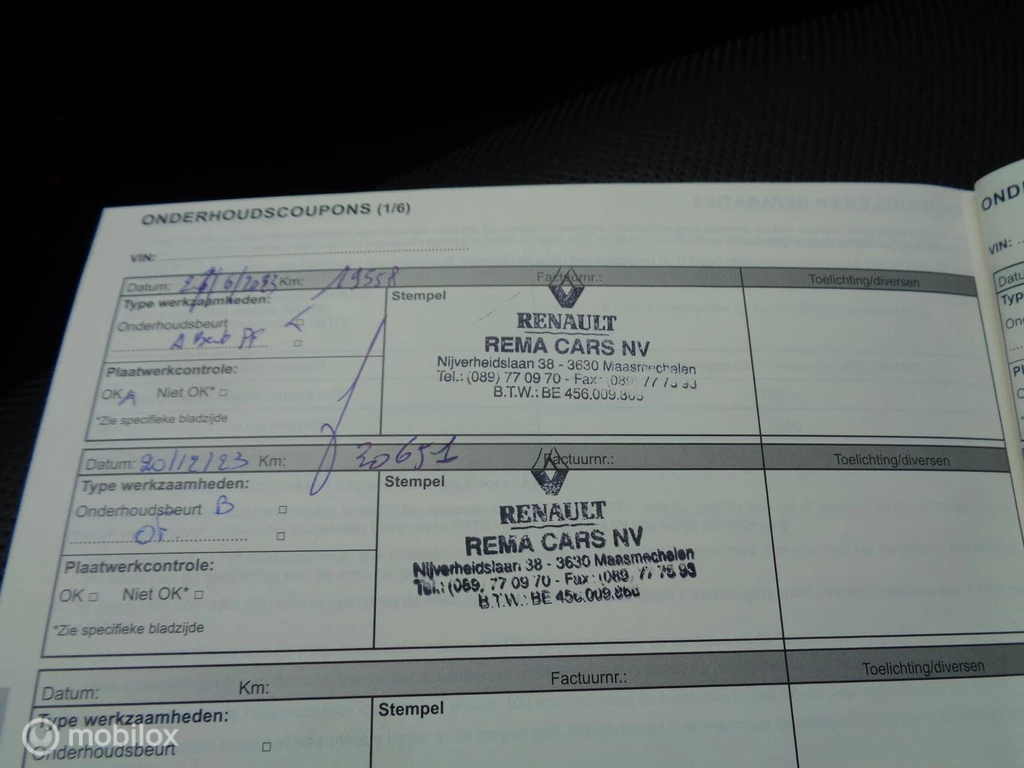 ONDERHOUDSCOUPONS (1/6)
VIN:
Datum: 6/2023 Km: 19558 Factuurnr.: Toelichting/diversen
Type werkzaamheden: Stempel
Onderhoudsbeurt
A
Plaatwerkcontrole:
OK Niet OK*
*Zie specifieke bladzijde
RENAULT
REMA CARS NV
Nijverheidslaan 38 - 3630 Maasmechelen
Tel.: (089) 77 09 70 - Fax: (089) 77 75 93
B.T.W.: BE 456.009.
Datum: 20/12/23 Km: 20651 Factuurnr.: Toelichting/diversen
Type werkzaamheden: Stempel
Onderhoudsbeurt B
Plaatwerkcontrole:
OK Niet OK*
*Zie specifieke bladzijde
RENAULT
REMA CARS NV
Nijverheidslaan 38 - 3630 Maasmechelen
Tel.: (089) 77 09 70 - Fax: (089) 77 75 93
B.T.W.: BE 456.009.
Datum: Km: Factuurnr.: Toelichting/diversen
Type werkzaamheden: Stempel
Onderhoudsbeurt
mobilox
VIN: